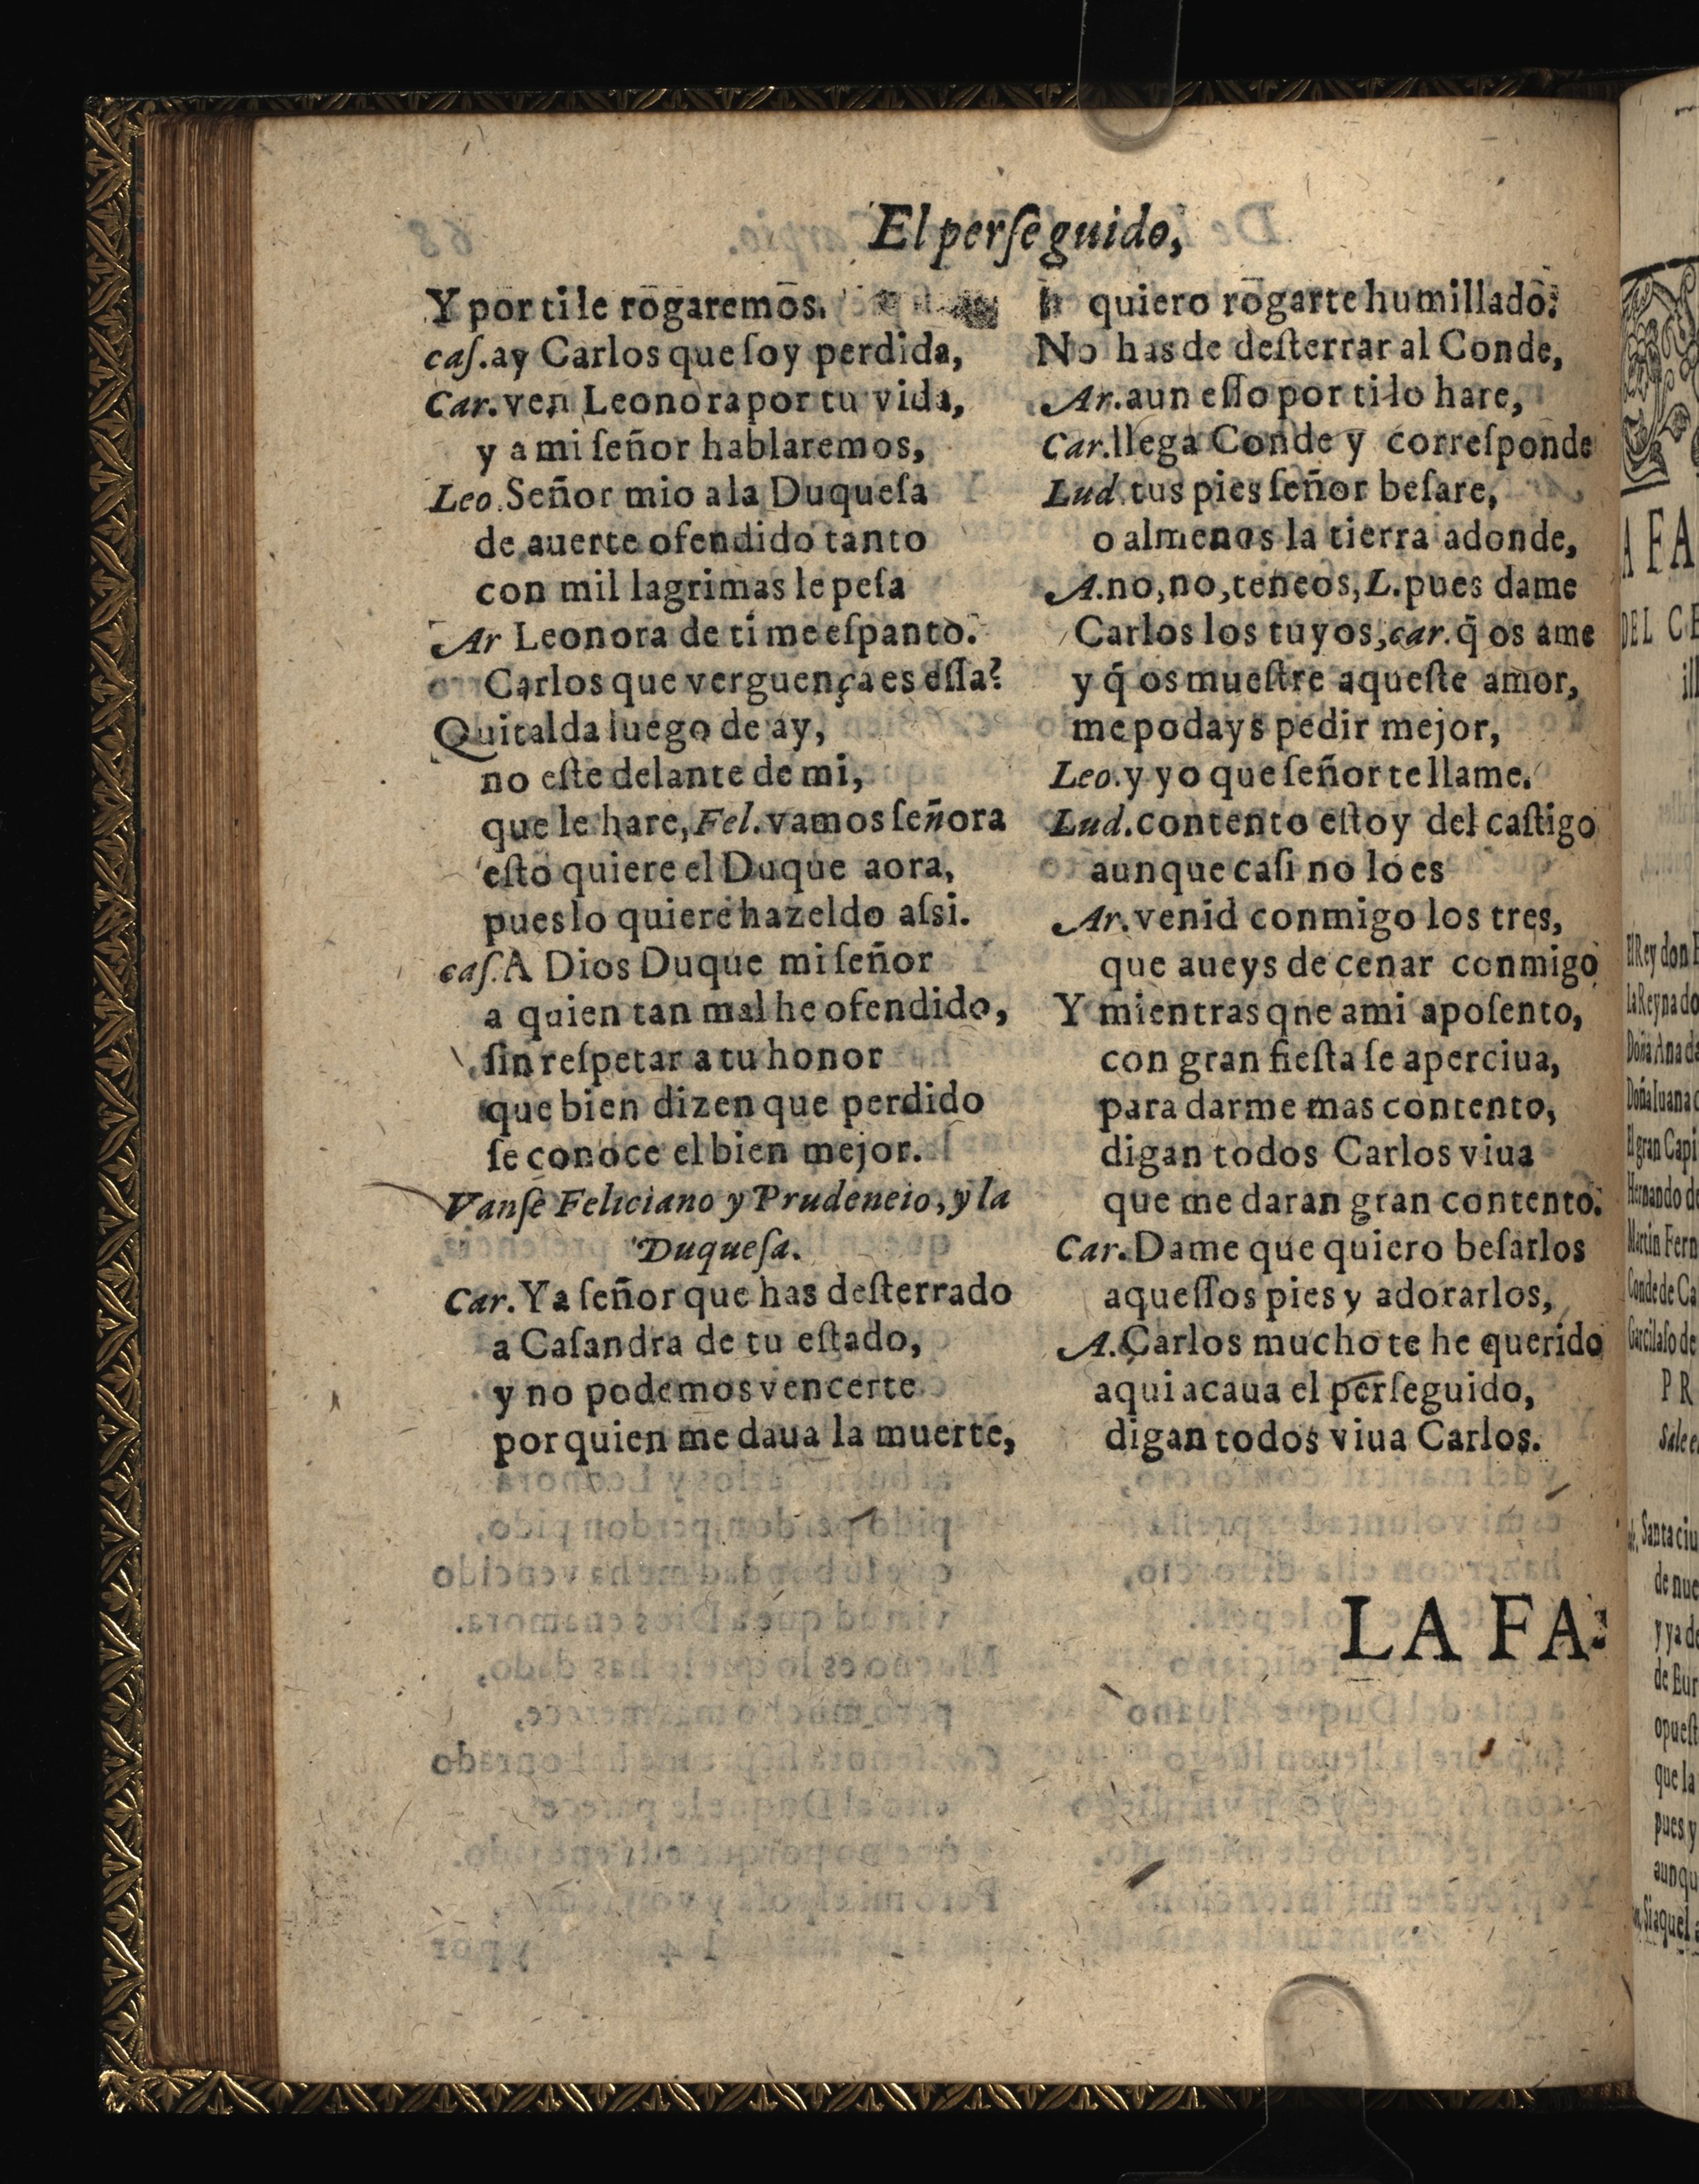 El perſeguido,
Y por ti le rogaremos.
caſ. ay Carlos que ſoy perdida,
Car. ven Leonora por tu vida,
y a mi ſeñor hablaremos,
Leo. Señor mio a la Duqueſa
de auerte ofendido tanto
con mil lagrimas le peſa
Ar Leonora de ti me eſpanto.
Carlos que verguença es eſſa?
Quitalda luego de ay,
no eſte delante de mi,
que le hare, Fel. vamos ſeñora
eſto quiere el Duque aora,
pues lo quiere hazeldo aſsi.
caſ. A Dios Duque mi ſeñor
a quien tan mal he ofendido,
ſin reſpetar a tu honor
que bien dizen que perdido
ſe conoce el bien mejor.
Vanſe Feliciano y Prudeneio, y la
Duqueſa.
Car. Ya ſeñor que has deſterrado
a Caſandra de tu eſtado,
y no podemos vencerte
por quien me daua la muerte,
quiero rogarte humillado:
No has de deſterrar al Conde,
Ar. aun eſſo por ti lo hare,
Car. llega Conde y correſponde
Lud. tus pies ſeñor beſare,
o almenos la tierra adonde,
A. no, no, teneos, L. pues dame
Carlos los tuyos, car. q̃ os ame
y q̃ os mueſtre aqueſte amor,
me podays pedir mejor,
Leo. y yo que ſeñor te llame.
Lud. contento eſtoy del caſtigo
aunque caſi no lo es
Ar. venid conmigo los tres,
que aueys de cenar conmigo
Y mientras qne ami apoſento,
con gran fieſta ſe aperciua,
para darme mas contento,
digan todos Carlos viua
que me daran gran contento.
Car. Dame que quiero beſarlos
aqueſſos pies y adorarlos,
A. Carlos mucho te he querido
aqui acaua el perſeguido,
digan todos viua Carlos.
LA FA-
A FA
DEL CE
ill
El Rey don F
la Reyna do
Doña Ana da
Doña Iuana
El gran Capi
Hernando de
Martin Fern
Conde de Ca
Garcilaſo de
PR
Sale e
Santa ciu
de nue
y ya de
de Eur
opueſt
que la
pues y
aunqu
Si aquel